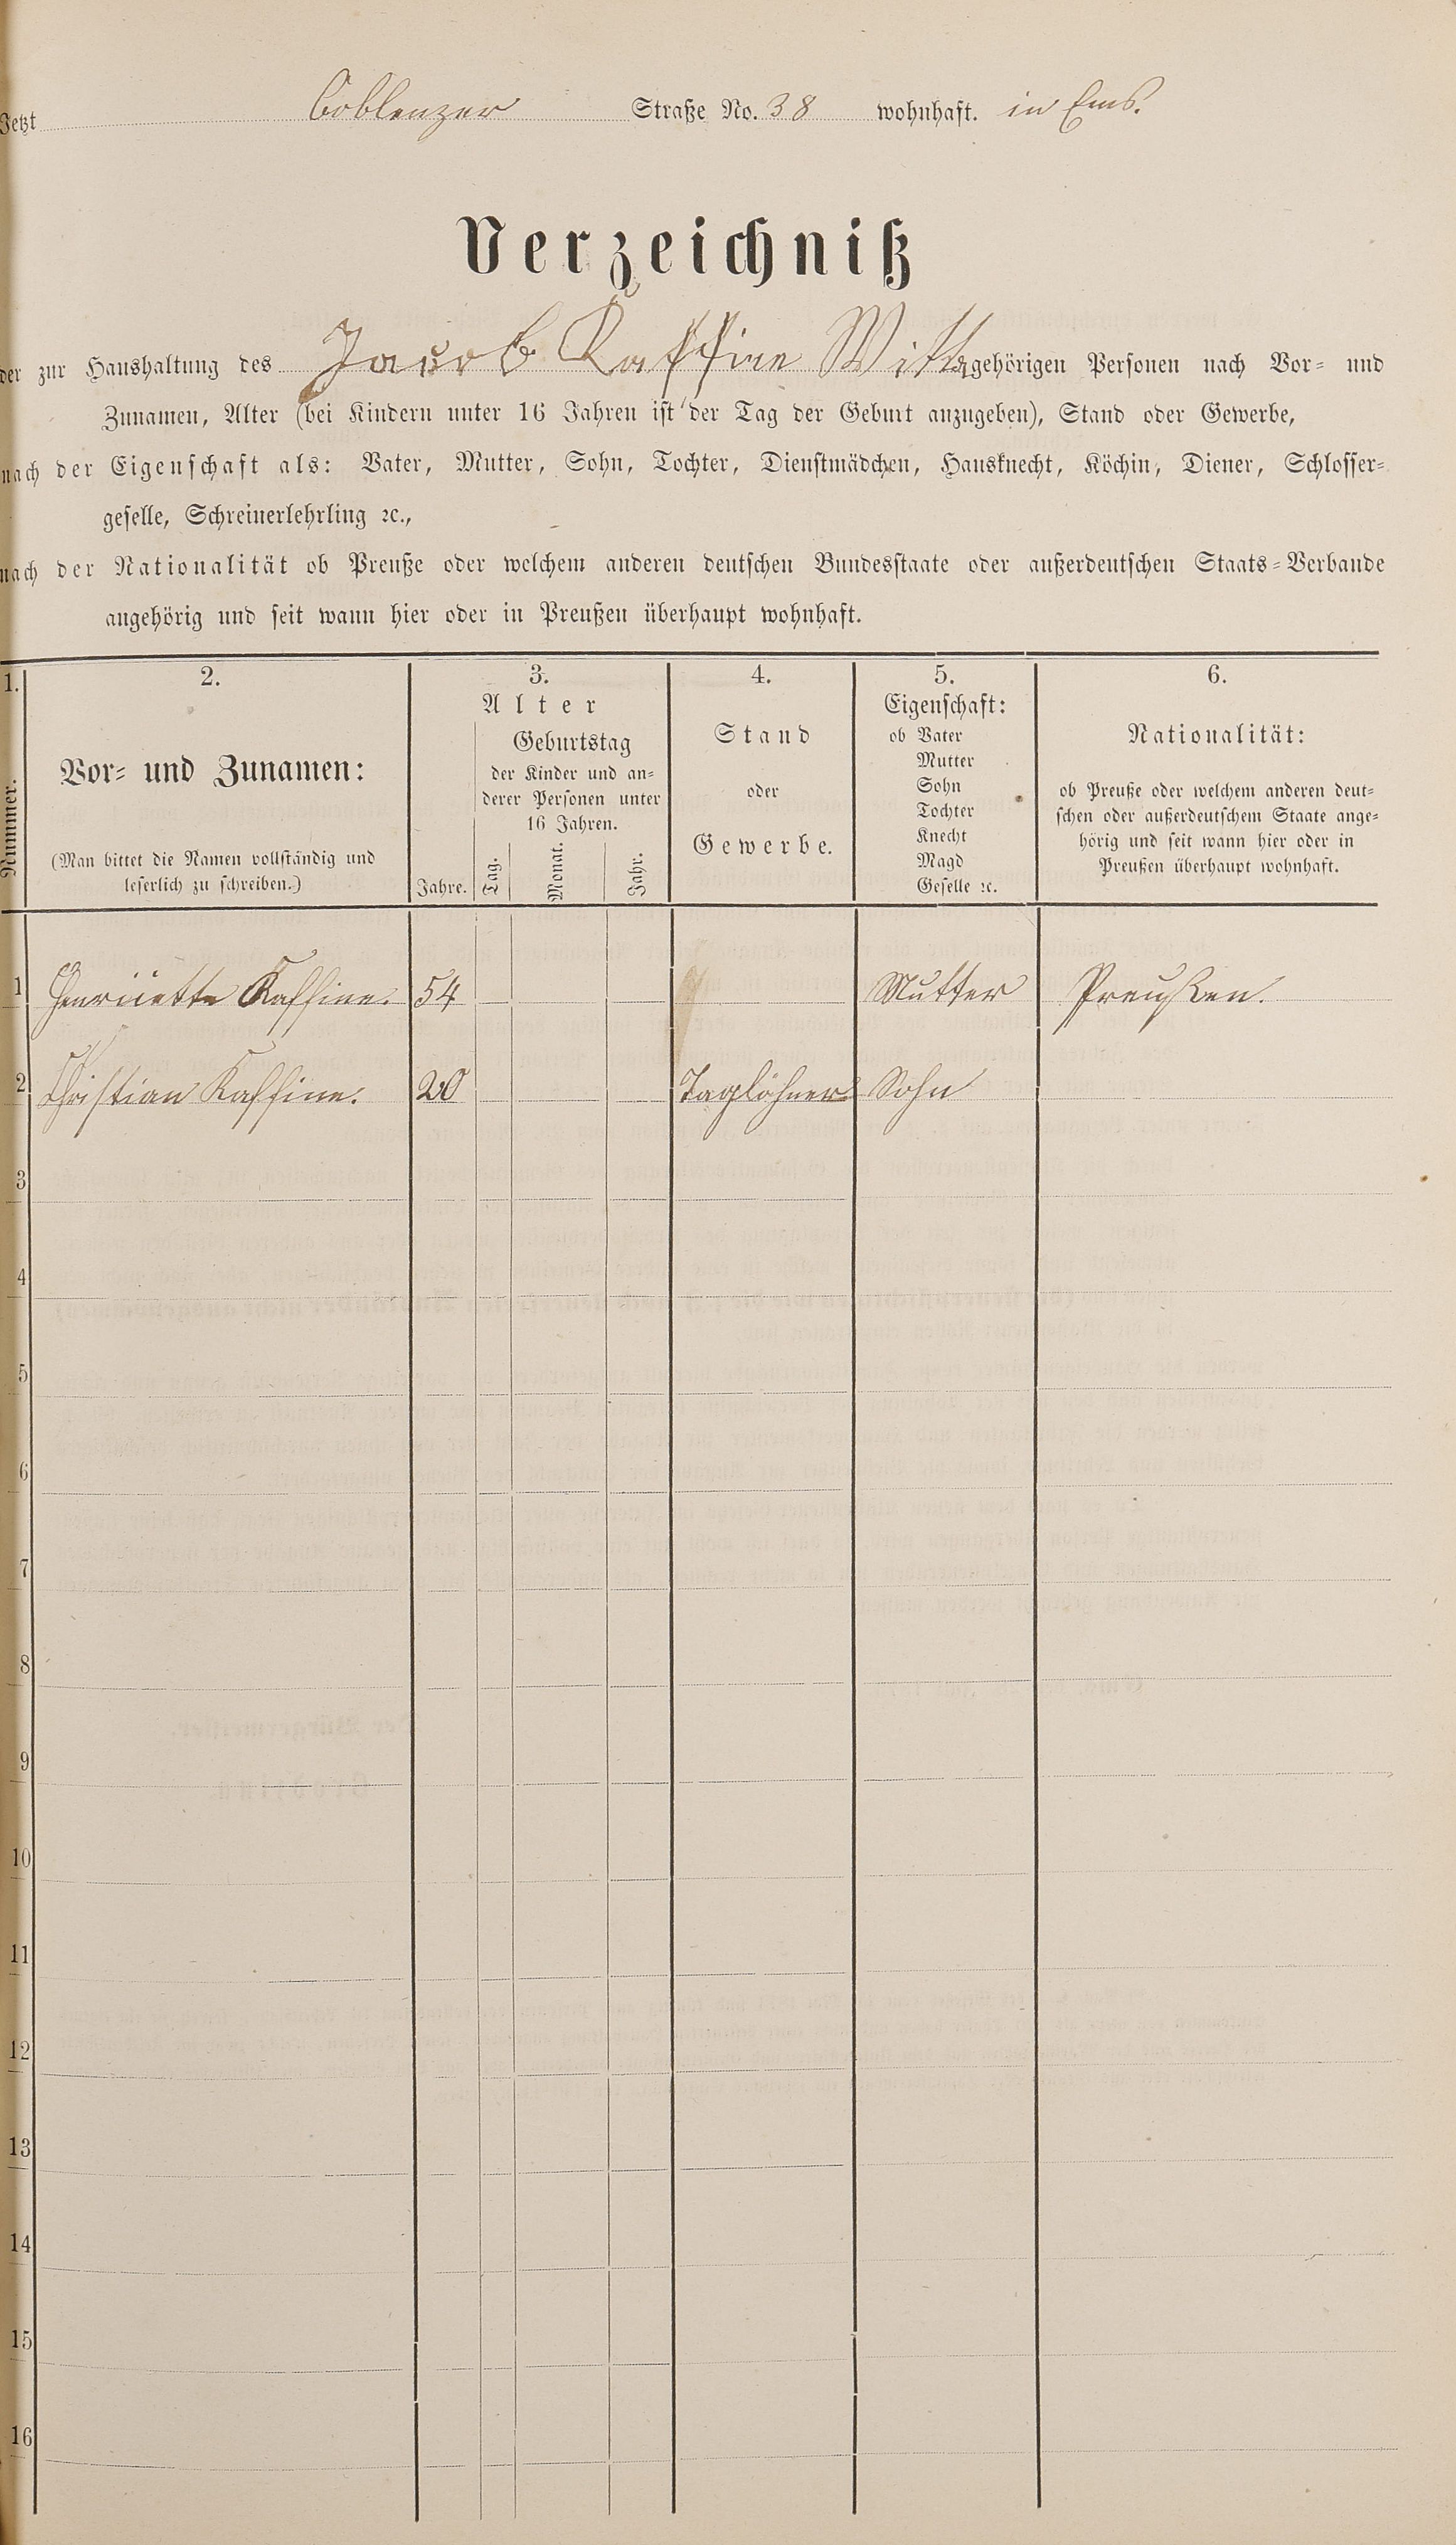 Jetzt Coblenzer Straße No. 38 wohnhaft. in Ems.
Verzeichniß
der zur Haushaltung des Jacob Kaffine Wittw gehörigen Personen nach Vor- und
Zunamen, Alter (bei Kindern unter 16 Jahren ist der Tag der Geburt anzugeben), Stand oder Gewerbe,
nach der Eigenschaft als: Vater, Mutter, Sohn, Tochter, Dienstmädchen, Hausknecht, Köchin, Diener, Schlosser-
geselle, Schreinerlehrling ꝛc.,
nach der Nationalität ob Preuße oder welchem anderen deutschen Bundesstaate oder außerdeutschen Staats-Verbande
angehörig und seit wann hier oder in Preußen überhaupt wohnhaft.
1.
Nummer.
2.
Vor- und Zunamen:
(Man bittet die Namen vollständig und
leserlich zu schreiben.)
3.
Alter
Jahre.
Geburtstag
der Kinder und an-
derer Personen unter
16 Jahren.
Tag.
Monat.
Jahr.
4.
Stand
oder
Gewerbe.
5.
Eigenschaft:
ob Vater
Mutter
Sohn
Tochter
Knecht
Magd
Geselle ꝛc.
6.
Nationalität:
ob Preuße oder welchem anderen deut-
schen oder außerdeutschem Staate ange-
hörig und seit wann hier oder in
Preußen überhaupt wohnhaft.
1 Henriette Kaffine. 54 Mutter Preußen.
2 Christian Kaffine. 20 Taglöhner Sohn
3
4
5
6
7
8
9
10
11
12
13
14
15
16